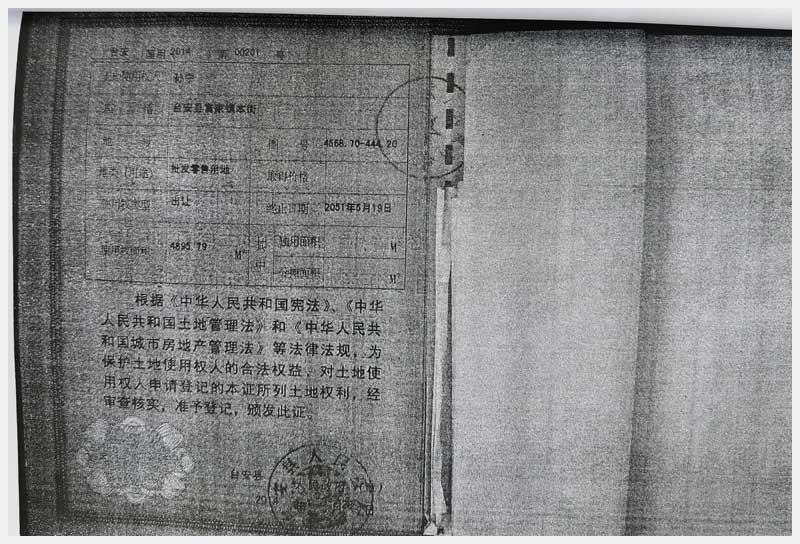 台安 国用 2014 第 00201 号
土地使用权人
座 落 台安县富家镇本街
地 号 图 号 4568.70-444.20
地类（用途） 批发零售用地 取得价格
使用权类型 出让 终止日期 2051年5月19日
使用权面积 4895.79 M² 其中 独用面积 M²
分摊面积 M²
根据《中华人民共和国宪法》、《中华
人民共和国土地管理法》和《中华人民共
和国城市房地产管理法》等法律法规，为
保护土地使用权人的合法权益，对土地使
用权人申请登记的本证所列土地权利，经
审查核实，准予登记，颁发此证。
台安县